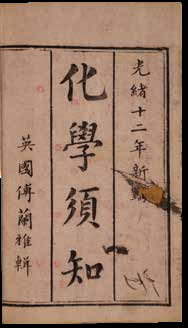 光緒十二年新
化學須知
英國傅蘭雅輯